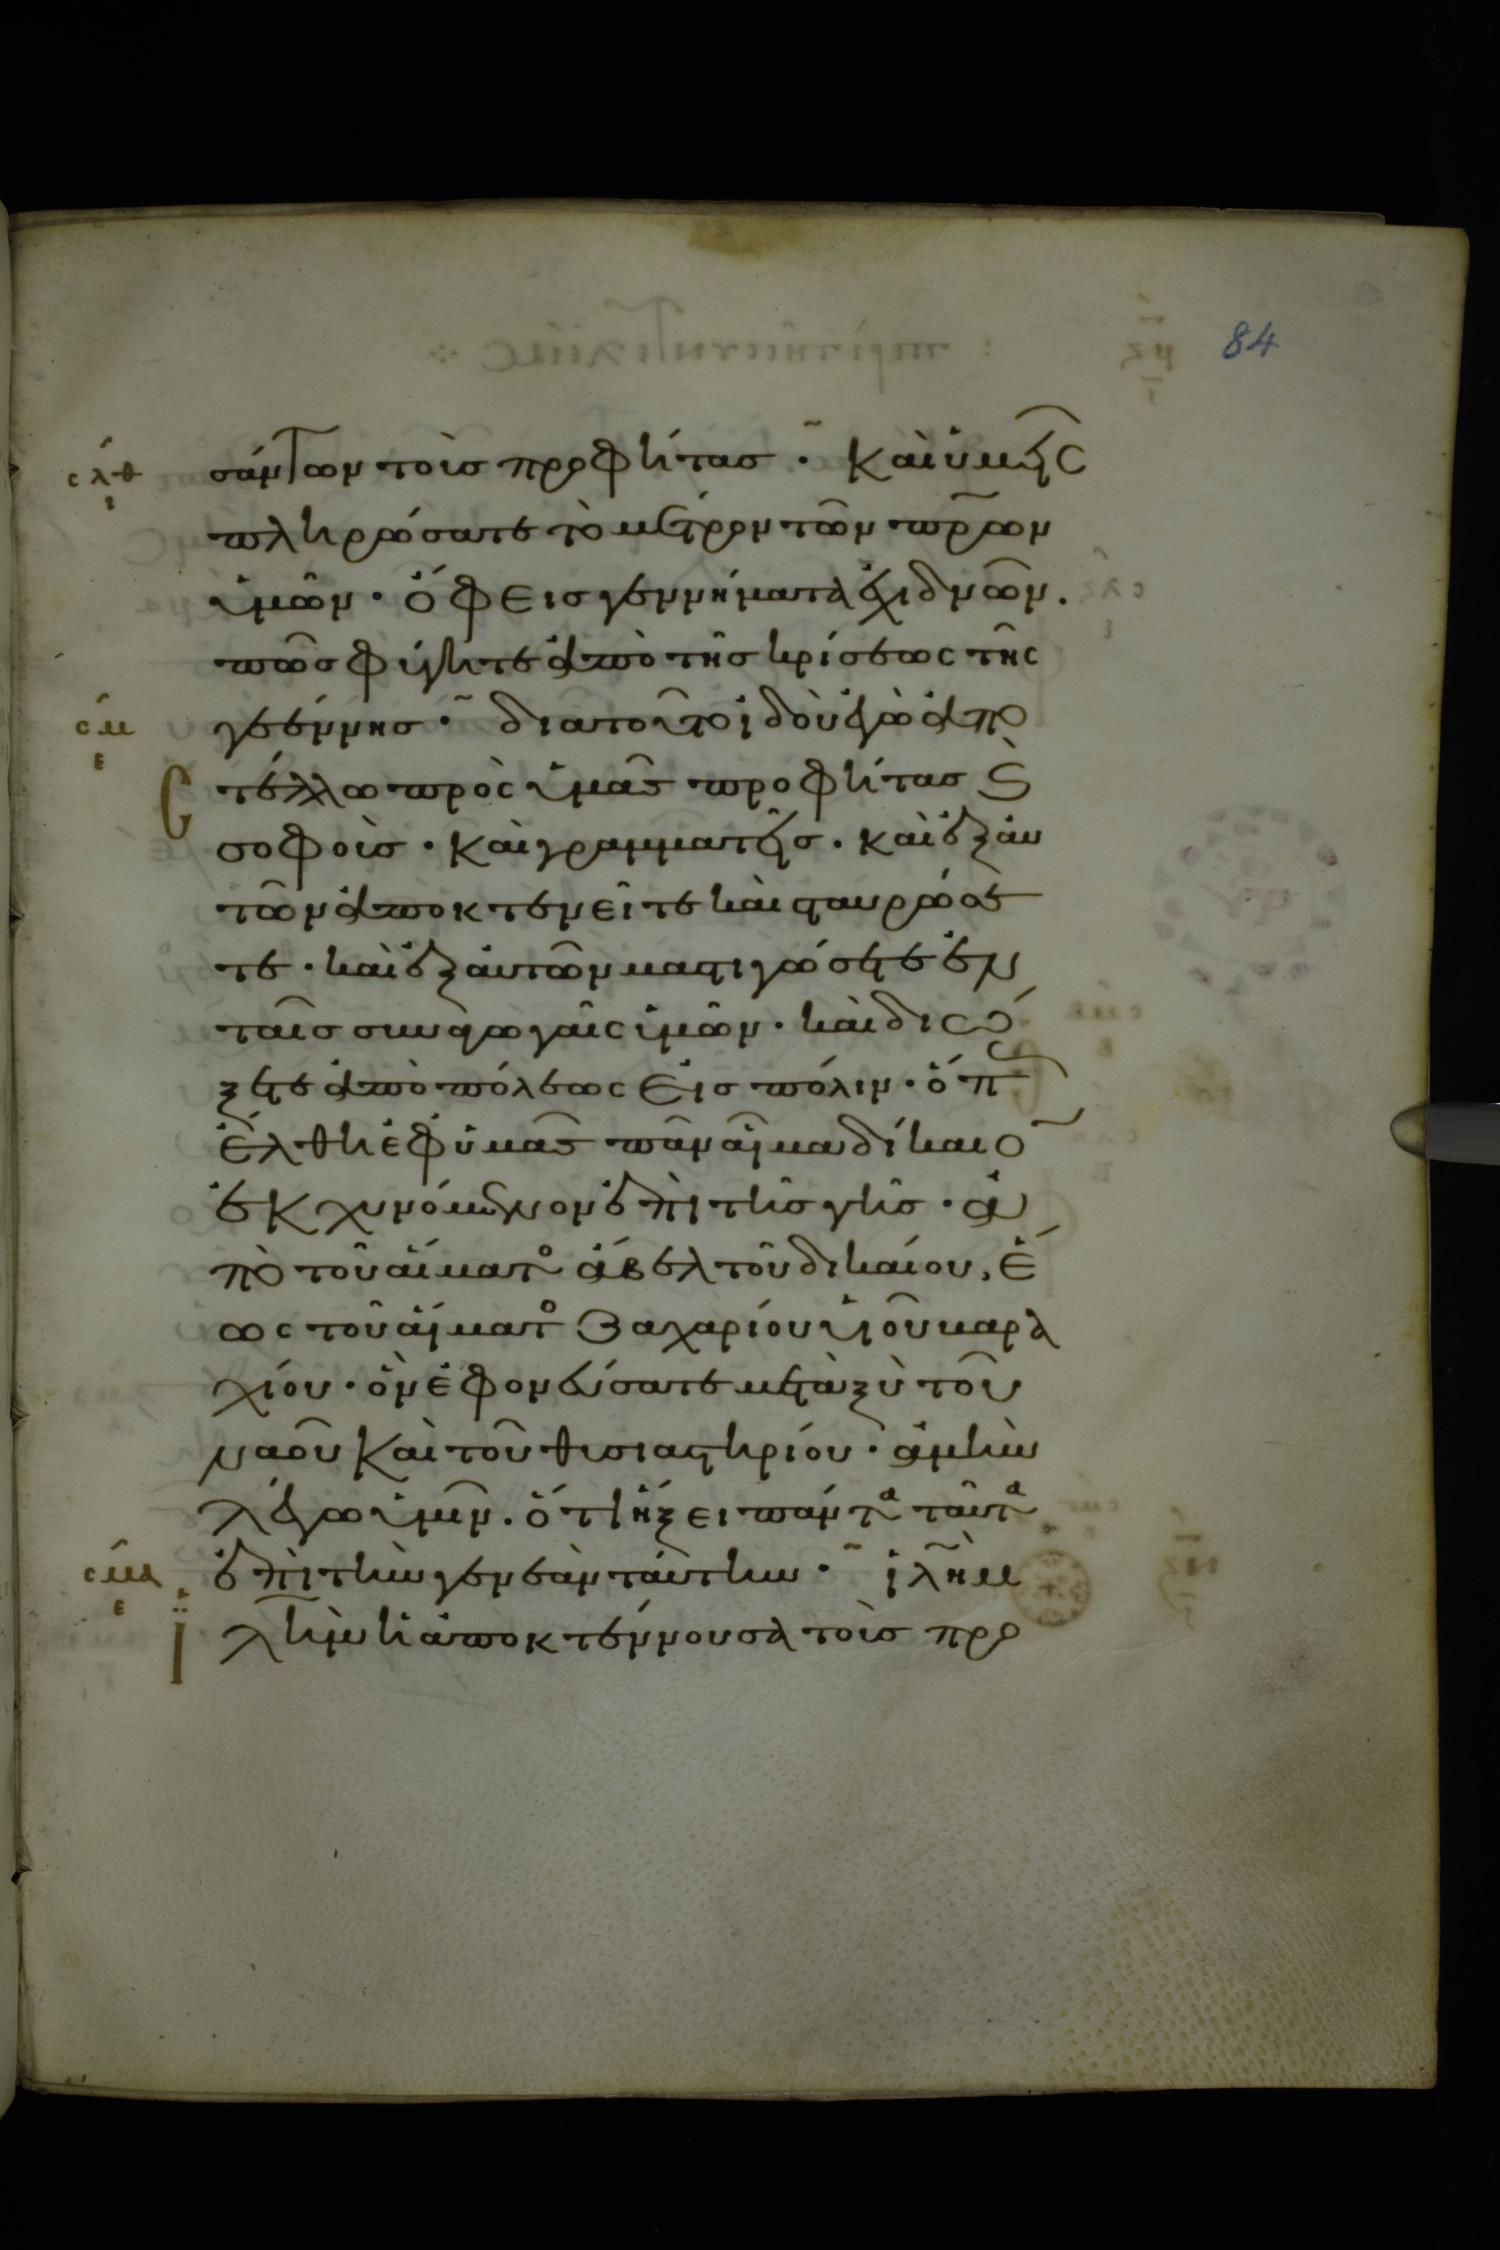 84
σλθ
ε
σάντων τοὺσ προφήτασ · καὶ ὑμεῖς
πληρώσατε τὸ μέτρον τῶν πρων
ὑμῶν · ὄφεισ γεννήματα ἐχιδνῶν.
πῶσ φύγητε ἀπὸ τῆσ κρίσεως τῆς
σμ
ε
γεέννησ · διατοῦτο ἰδοὺ ἐγὼ ἀπο
στέλλω πρὸς ὑμᾶσ προφήτασ ϗ
σοφοὺσ · καὶ γραμματεῖσ · καὶ ἐξ αυ
τῶν ἀποκτενεῖτε καὶ σταυρώσε
τε · καὶ ἐξ αὐτῶν μαστιγώσετε ἐν
ταῖσ συναγωγαῖς ὑμῶν · καὶ διώ
ξετε ἀπὸ πόλεως εἰσ πόλιν · ὅπ
ἔλθη ἐφ ὑμᾶσ πᾶν αἷμα δίκαιο
ἐκχυνόμενον ἐπὶ τῆσ γῆσ · ἀ
πὸ τοῦ αἵματο ἄβελ τοῦ δικαίου, ἕ
ως τοῦ αἵματο Ζαχαρίου υἱοῦ βαρα
χίου · ὃν ἐφονεύσατε μεταξὺ τοῦ
ναοῦ καὶ τοῦ θυσιαστηρίου · ἀμὴν
λέγω ὑμῖν. ὅτι ἥξει πάντα ταῦτα
σμα
ε
ἐπὶ τὴν γενεὰν ταύτην · ϊλημ
ϊλημ ἡ ἀποκτέννουσα τοὺσ προ